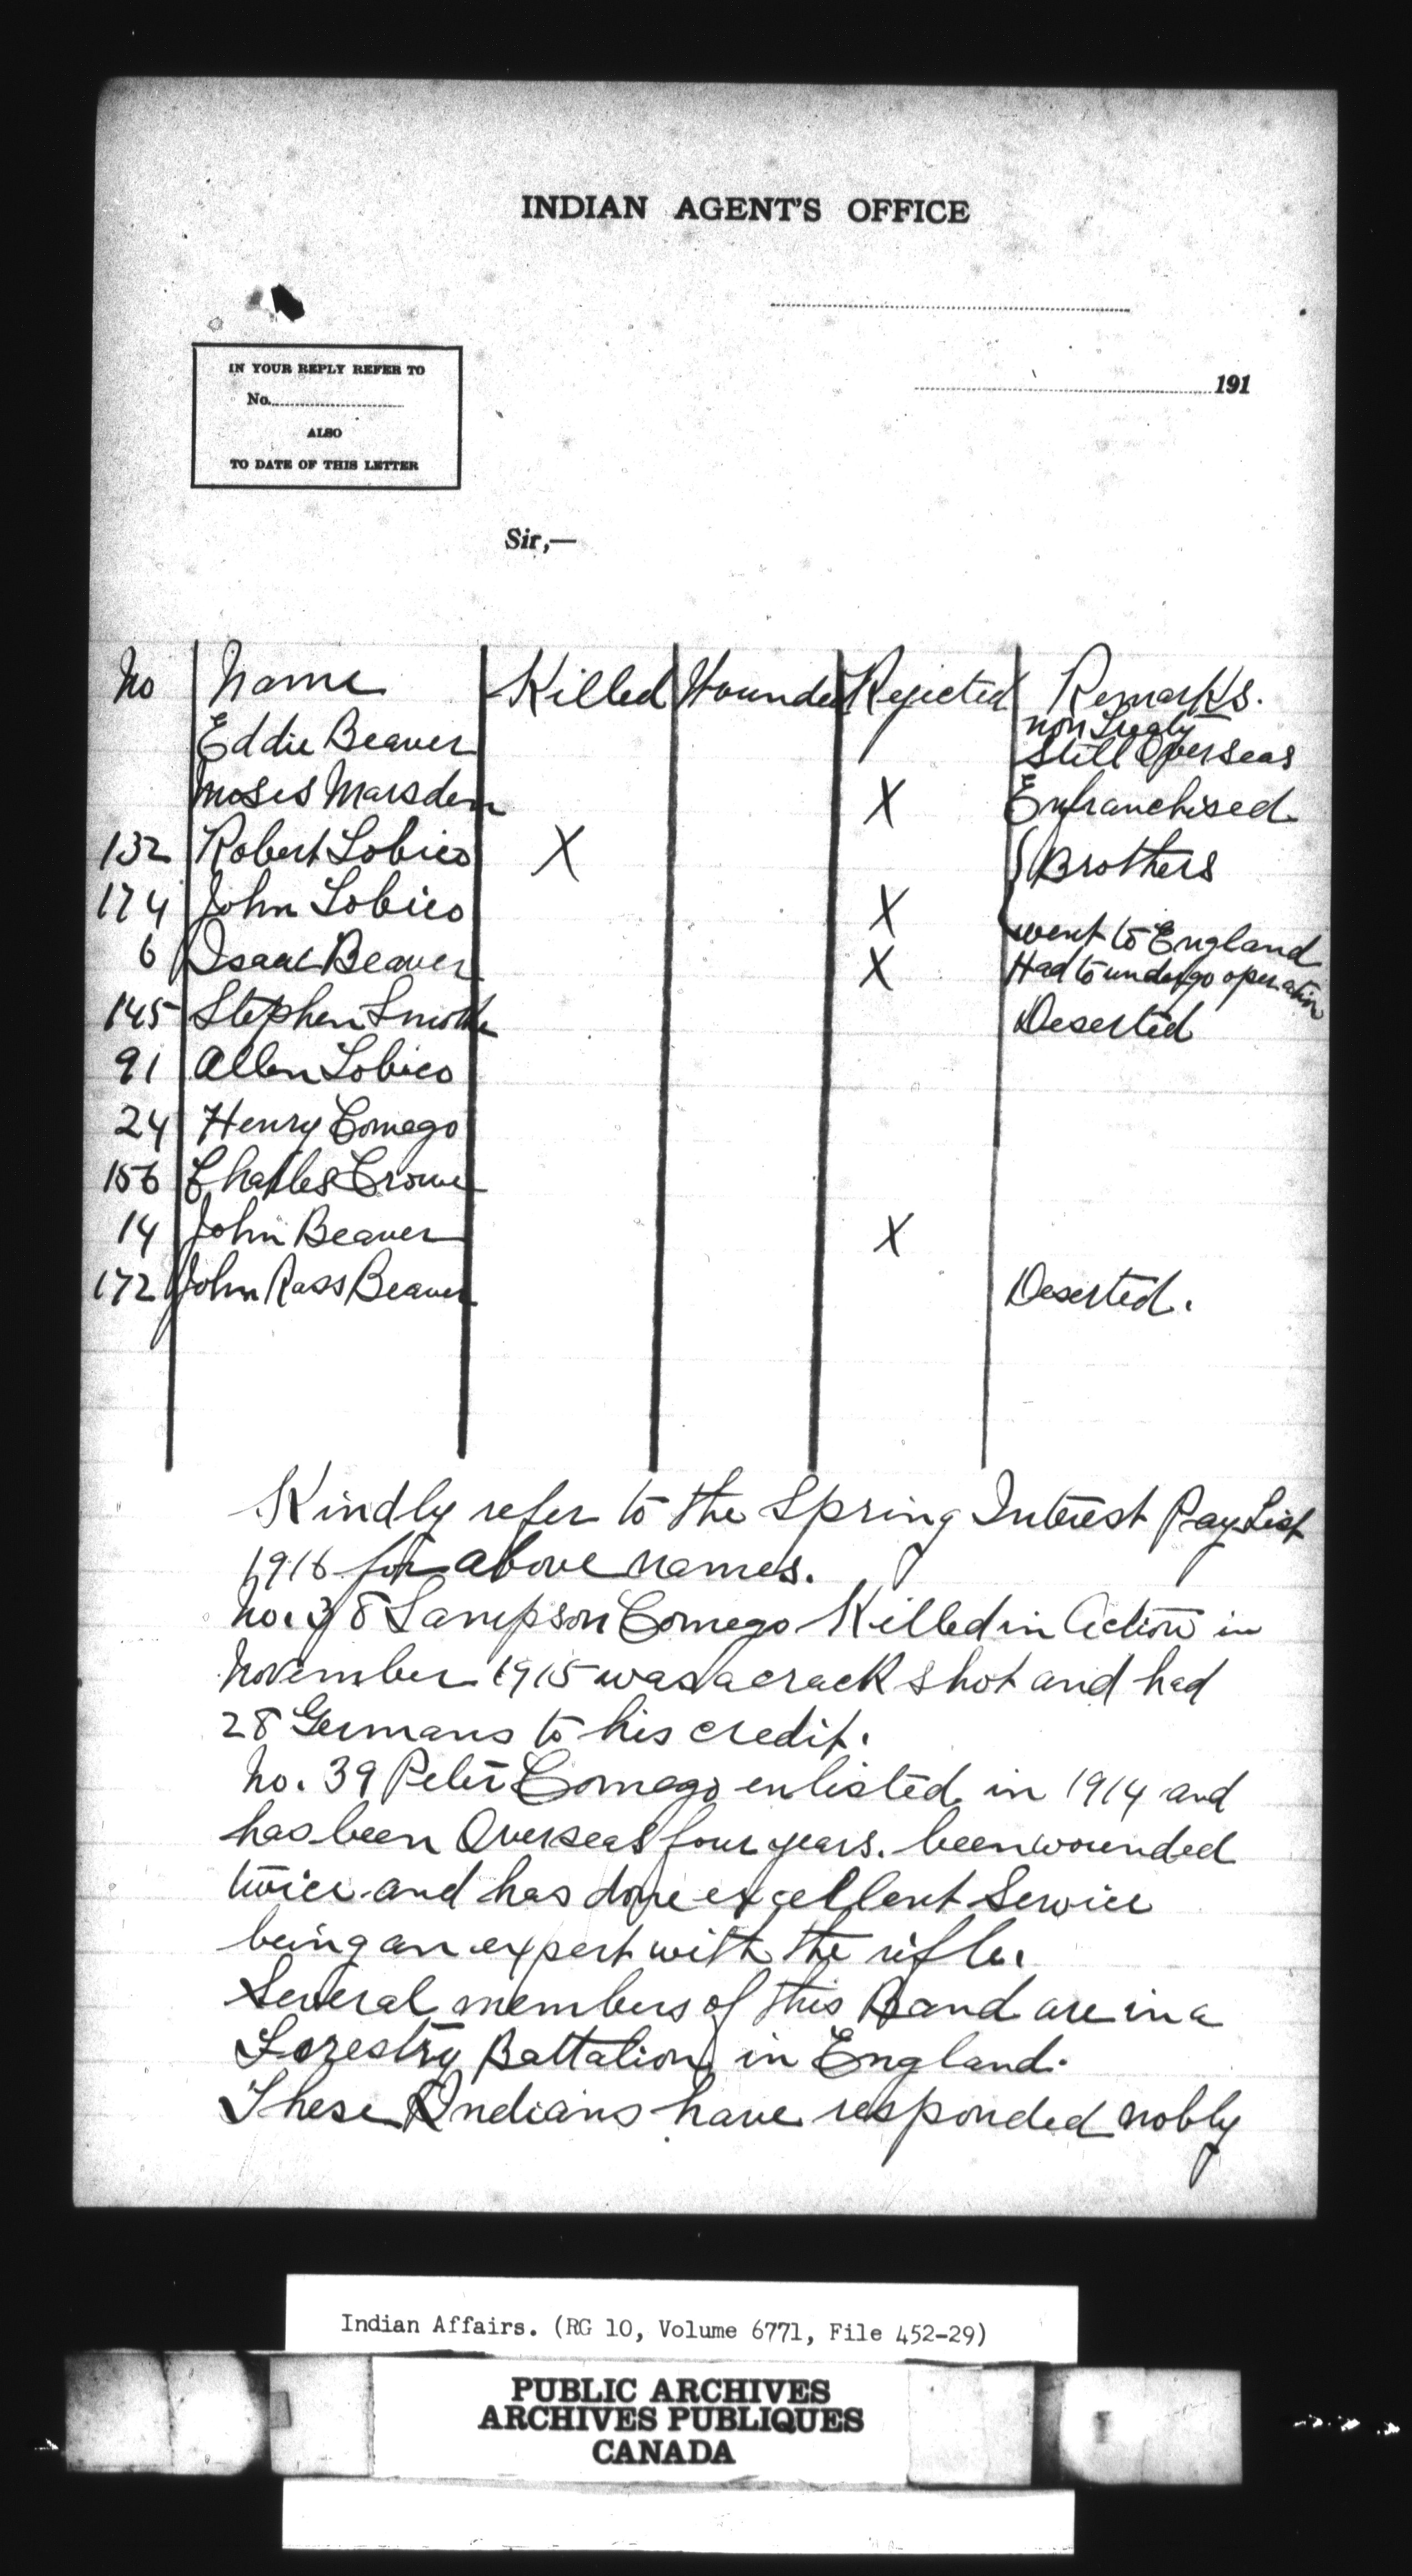 INDIAN AGENT'S OFFICE
191
IN YOUR REPLY REFER TO
No.
ALSO
TO DATE OF THIS LETTER
Sir,—
No Name Killed Wounded Rejected Remarks.
Eddie Beaver non Treaty
Still Overseas
Moses Marsden X Enfranchised
132 Robert Lobico X Brothers
174 John Lobico X went to England
6 Isaac Beaver X Had to undergo operation
145 Stephen Smoke Deserted
91 Allen Lobico
24 Henry Comego
156 Charles Crowe
14 John Beaver X
172 John Rass Beaver Deserted.
Kindly refer to the Spring Interest Pay List
1916 for above names.
No. 38 Sampson Comego Killed in Action in
November 1915 was a crack shot and had
28 Germans to his credit.
No. 39 Peter Comego enlisted in 1914 and
has been Overseas four years. been wounded
twice and has done excellent Service
being an expert with the rifle.
Several members of this Band are in a
Forestry Battalion in England.
These Indians have responded nobly
Indian Affairs. (RG 10, Volume 6771, File 452-29)
PUBLIC ARCHIVES
ARCHIVES PUBLIQUES
CANADA